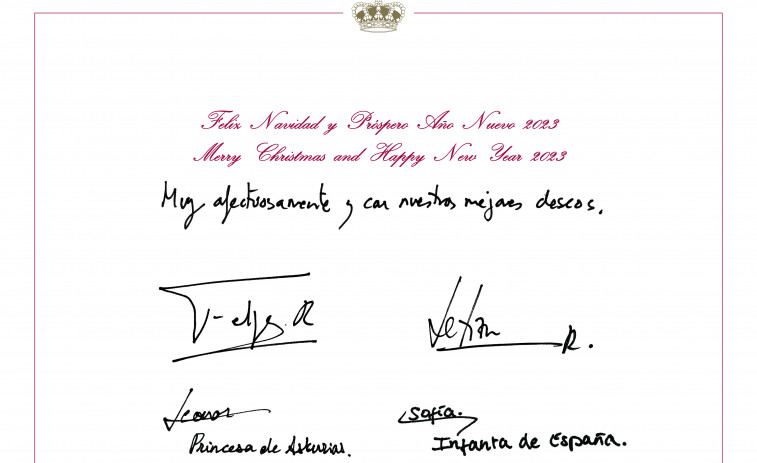 Feliz Navidad y Próspero Año Nuevo 2023
Merry Christmas and Happy New Year 2023
Muy afectuosamente y con nuestros mejores deseos.
Felipe R
Letizia R.
Leonor
Sofía.
Princesa de Asturias.
Infanta de España.